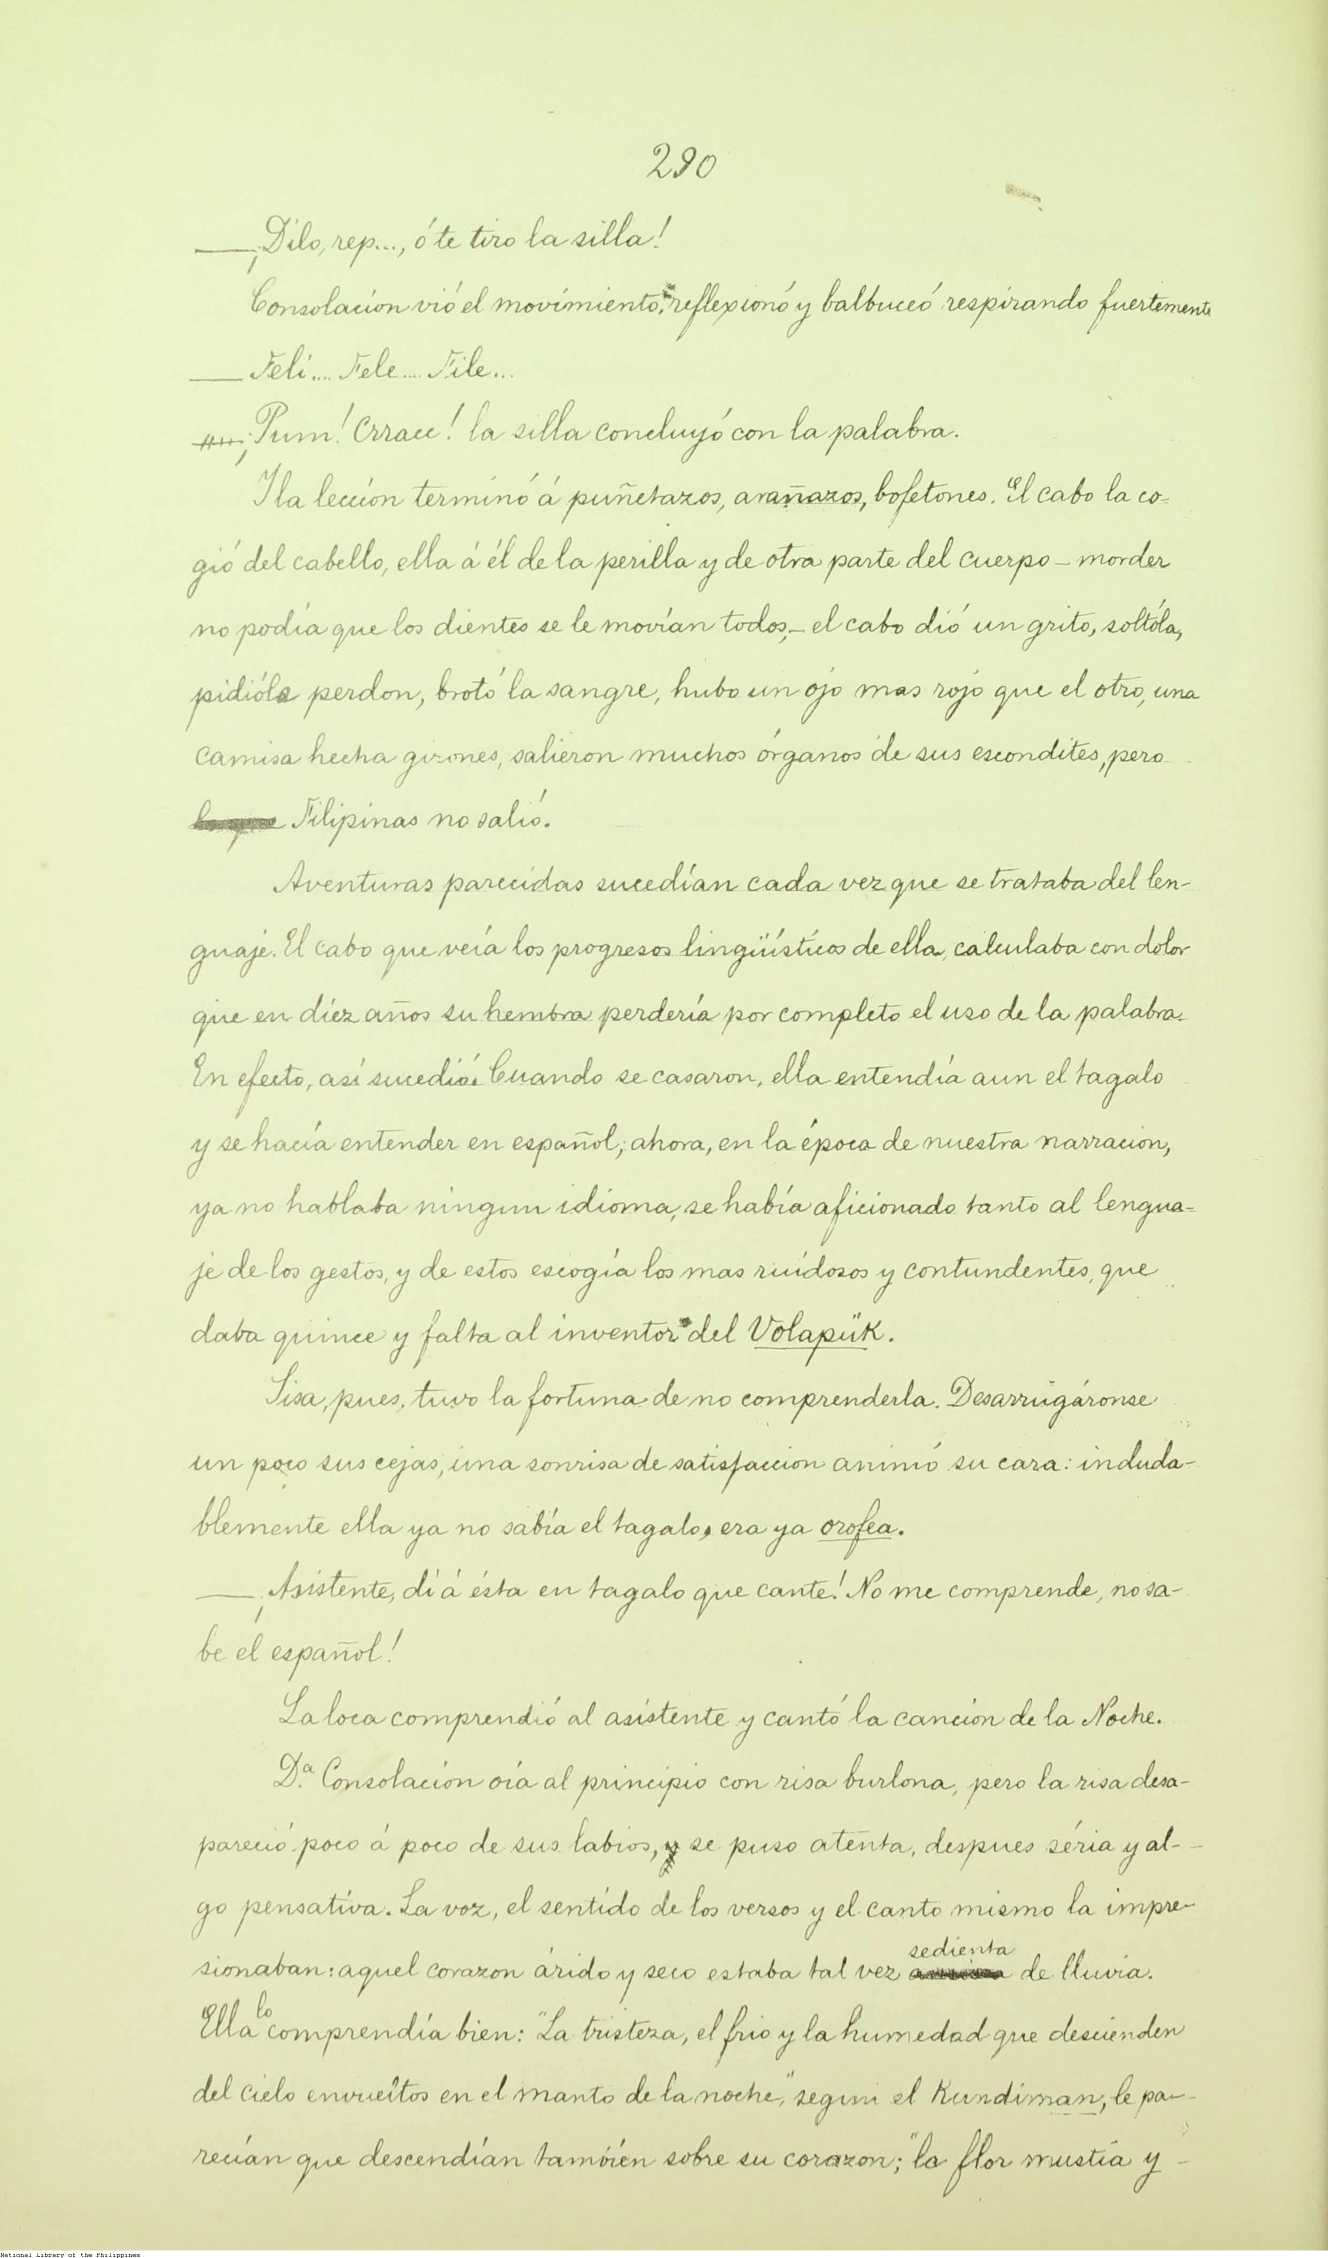 290
—¡Dilo, rep..., ó te tiro la silla!
Consolacion vió el movimiento, reflexionó y balbuceó respirando fuertemente
— Feli.... Fele.... File...
¡Pum! Crracc! la silla concluyó con la palabra.
Y la leccion terminó á puñetazos, arañazos, bofetones. El cabo la co-
gió del cabello, ella á él de la perilla y de otra parte del cuerpo – morder
no podía que los dientes se le movían todos, – el cabo dió un grito, soltóla,
pidióle perdon, brotó la sangre, hubo un ojo mas rojo que el otro, una
camisa hecha girones, salieron muchos órganos de sus escondites, pero
Filipinas no salió.
Aventuras parecidas sucedían cada vez que se trataba del len-
guaje. El cabo que veía los progresos lingüísticos de ella, calculaba con dolor
que en diez años su hembra perdería por completo el uso de la palabra.
En efecto, así sucedió. Cuando se casaron, ella entendía aun el tagalo
y se hacía entender en español; ahora, en la época de nuestra narracion,
ya no hablaba ningun idioma, se había aficionado tanto al lengua-
je de los gestos, y de estos escogía los mas ruidosos y contundentes, que
daba quince y falta al inventor del Volapük.
Sisa, pues, tuvo la fortuna de no comprenderla. Desarrugáronse
un poco sus cejas, una sonrisa de satisfaccion animó su cara: induda-
blemente ella ya no sabía el tagalo, era ya orofea.
—¡Asistente, di á ésta en tagalo que cante! No me comprende, no sa-
be el español!
La loca comprendió al asistente y cantó la cancion de la Noche.
D.ª Consolacion oía al principio con risa burlona, pero la risa desa-
pareció poco á poco de sus labios, y se puso atenta, despues séria y al-
go pensativa. La voz, el sentido de los versos y el canto mismo la impre-
sionaban: aquel corazon árido y seco estaba tal vez sedienta de lluvia.
Ella lo comprendía bien: "La tristeza, el frio y la humedad que descienden
del cielo envueltos en el manto de la noche," segun el Kundiman, le pa-
recían que descendían también sobre su corazon; "la flor mustia y
National Library of the Philippines